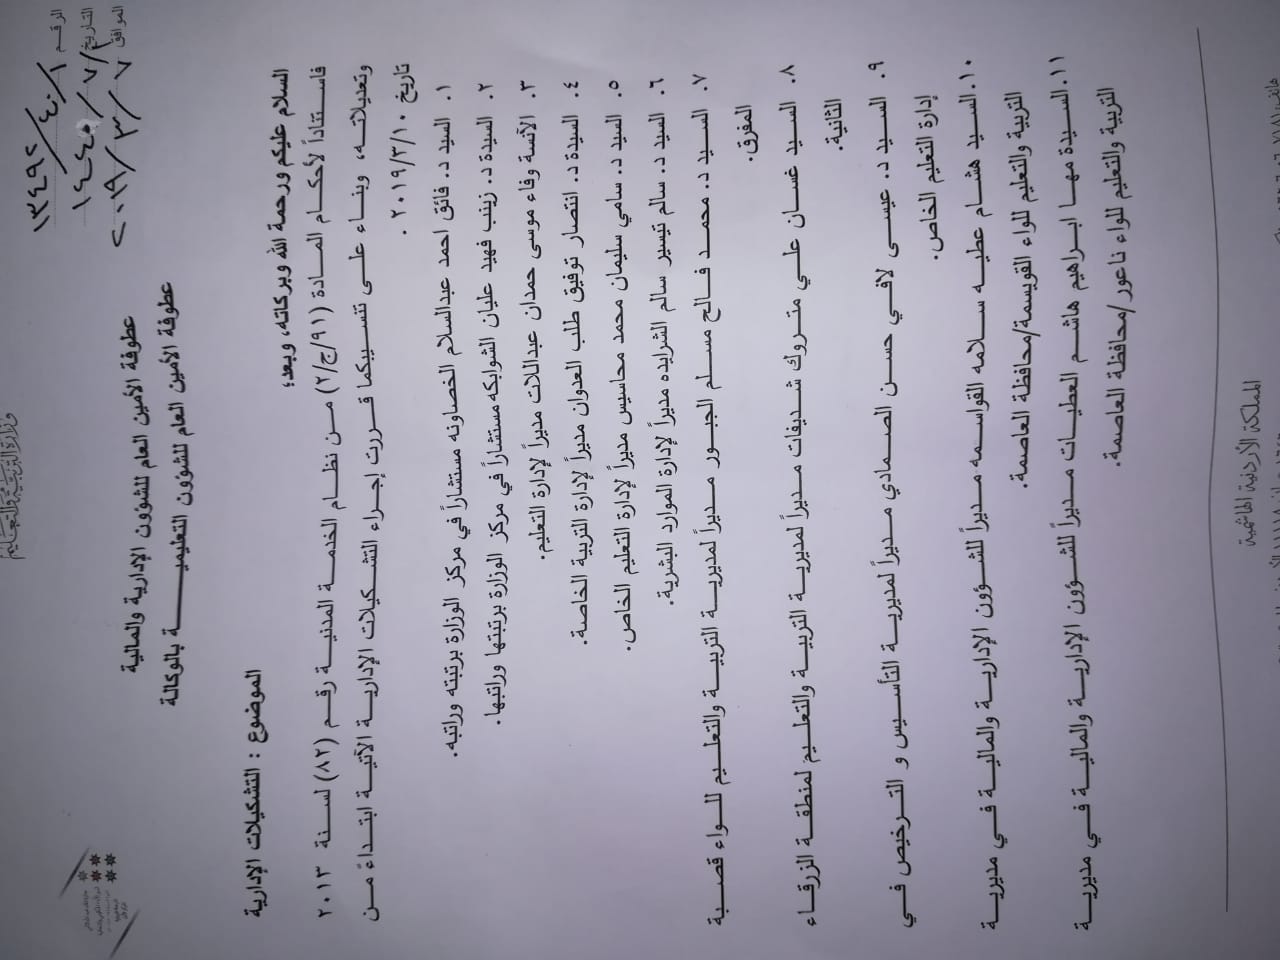 وزارة التربية والتعليم
الرقم ١٣٤٩٢/٤٠/١
التاريخ ١٤٤٠/٧/
الموافق ٢٠١٩/٣/٧
عطوفة الأمين العام للشؤون الإدارية والمالية
عطوفة الأمين العام للشؤون التعليمية بالوكالة
الموضوع : التشكيلات الإدارية
السلام عليكم ورحمة الله وبركاته، وبعد؛
فاستناداً لأحكام المادة (٩١/ج/٢) من نظام الخدمة المدنية رقم (٨٢) لسنة ٢٠١٣
وتعديلاته، وبناء على تنسيبكما قررت إجراء التشكيلات الإدارية الآتية ابتداءً من
تاريخ ٢٠١٩/٣/١٠ .
١. السيد د. فائق احمد عبدالسلام الخصاونه مستشاراً في مركز الوزارة برتبته وراتبه.
٢. السيدة د. زينب فهيد عليان الشوابكه مستشاراً في مركز الوزارة برتبتها وراتبها.
٣. الآنسة وفاء موسى حمدان عبداللات مديراً لإدارة التعليم.
٤. السيدة د. انتصار توفيق طلب العدوان مديراً لإدارة التربية الخاصة.
٥. السيد د. سامي سليمان محمد محاسيس مديراً لإدارة التعليم الخاص.
٦. السيد د. سالم تيسير سالم الشرايده مديراً لإدارة الموارد البشرية.
٧. السيد د. محمد فالح مسلم الجبور مديراً لمديرية التربية والتعليم للواء قصبة
المفرق.
٨. السيد غسان علي متروك شديفات مديراً لمديرية التربية والتعليم لمنطقة الزرقاء
الثانية.
٩. السيد د. عيسى لافي حسن الصمادي مديراً لمديرية التأسيس و الترخيص في
إدارة التعليم الخاص.
١٠. السيد هشام عطيه سلامه القواسمه مديراً للشؤون الإدارية والمالية في مديرية
التربية والتعليم للواء القويسمة/محافظة العاصمة.
١١. السيدة مها ابراهيم هاشم العطيات مديراً للشؤون الإدارية والمالية في مديرية
التربية والتعليم للواء ناعور/محافظة العاصمة.
المملكة الأردنية الهاشمية